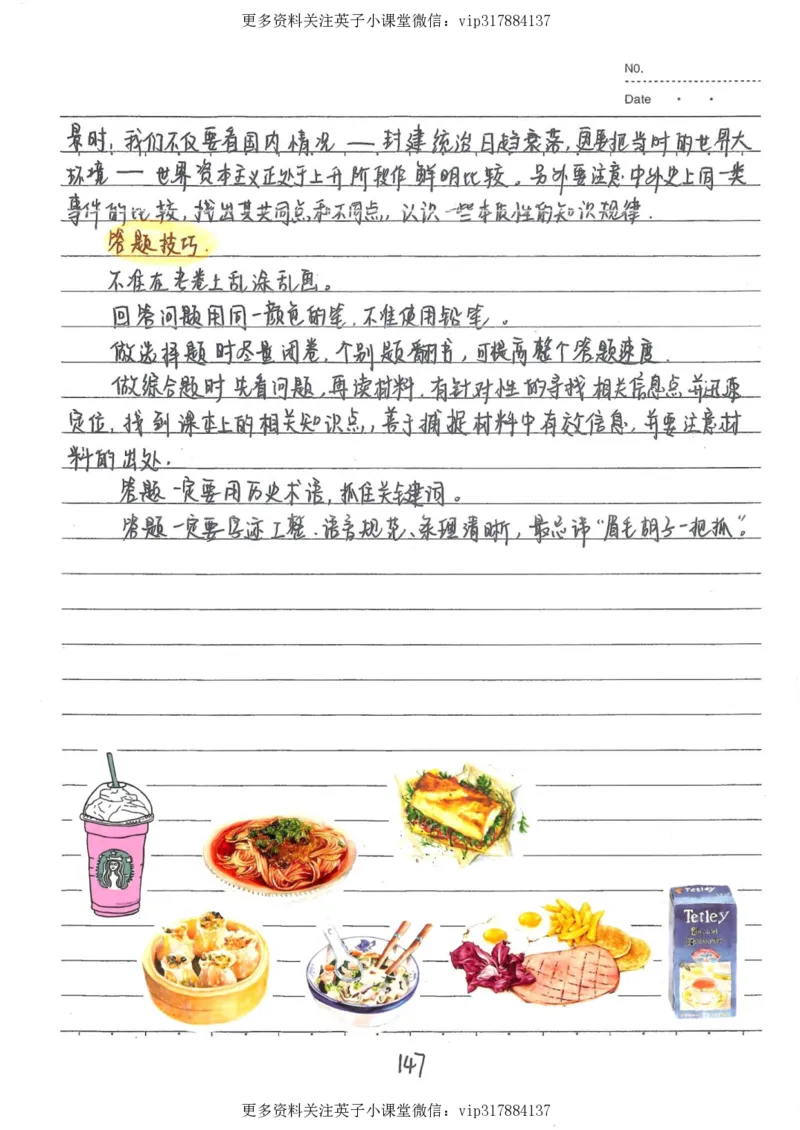 更多资料关注英子小课堂微信：vip317884137
NO.
Date
景时，我们不仅要看国内情况 — 封建统治日趋衰落，更要把当时的世界大
环境 — 世界资本主义正处于上升阶段作鲜明比较。另外要注意中外史上同一类
事件的比较，找出其共同点和不同点，认识一些本质性的知识规律.
答题技巧.
不准在考卷上乱涂乱画。
回答问题用同一颜色的笔，不准使用铅笔。
做选择题时尽量闭卷，个别题翻书，可提高整个答题速度.
做综合题时先看问题，再读材料，有针对性的寻找相关信息点并迅速
定位，找到课本上的相关知识点，善于捕捉材料中有效信息，并要注意材
料的出处.
答题一定要用历史术语，抓住关键词。
答题一定要字迹工整、语言规范、条理清晰，最忌讳“眉毛胡子一把抓”。
Tetley
Tetley
ENGLISH
BREAKFAST
147
更多资料关注英子小课堂微信：vip317884137